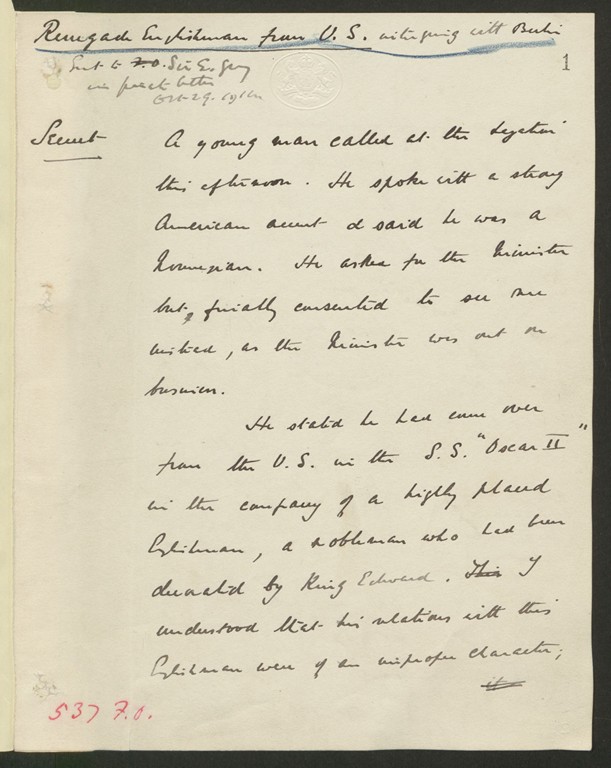 Renegade Englishman from U.S. intriguing with Berlin
Sent to F.O. Sir E. Grey
in private letter
Oct 29. 1914
1
Secret
A young man called at the Legation
this afternoon. He spoke with a strong
American accent & said he was a
Norwegian. He asked for the Minister
but, finally consented to see me
instead, as the Minister was out on
business.
He stated he had come over
from the U.S. in the S.S. "Oscar II"
in the company of a highly placed
Englishman, a nobleman who had been
decorated by King Edward. This I
understood that his relations with this
Englishman were of an improper character;
it
537 F.O.